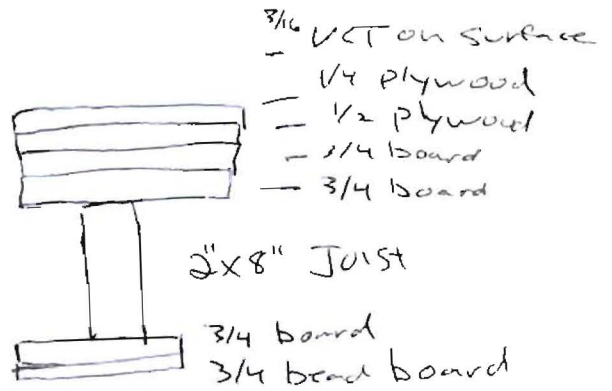 3/16 VCT on surface
1/4 plywood
1/2 plywood
3/4 board
3/4 board
2"x8" Joist
3/4 board
3/4 bead board